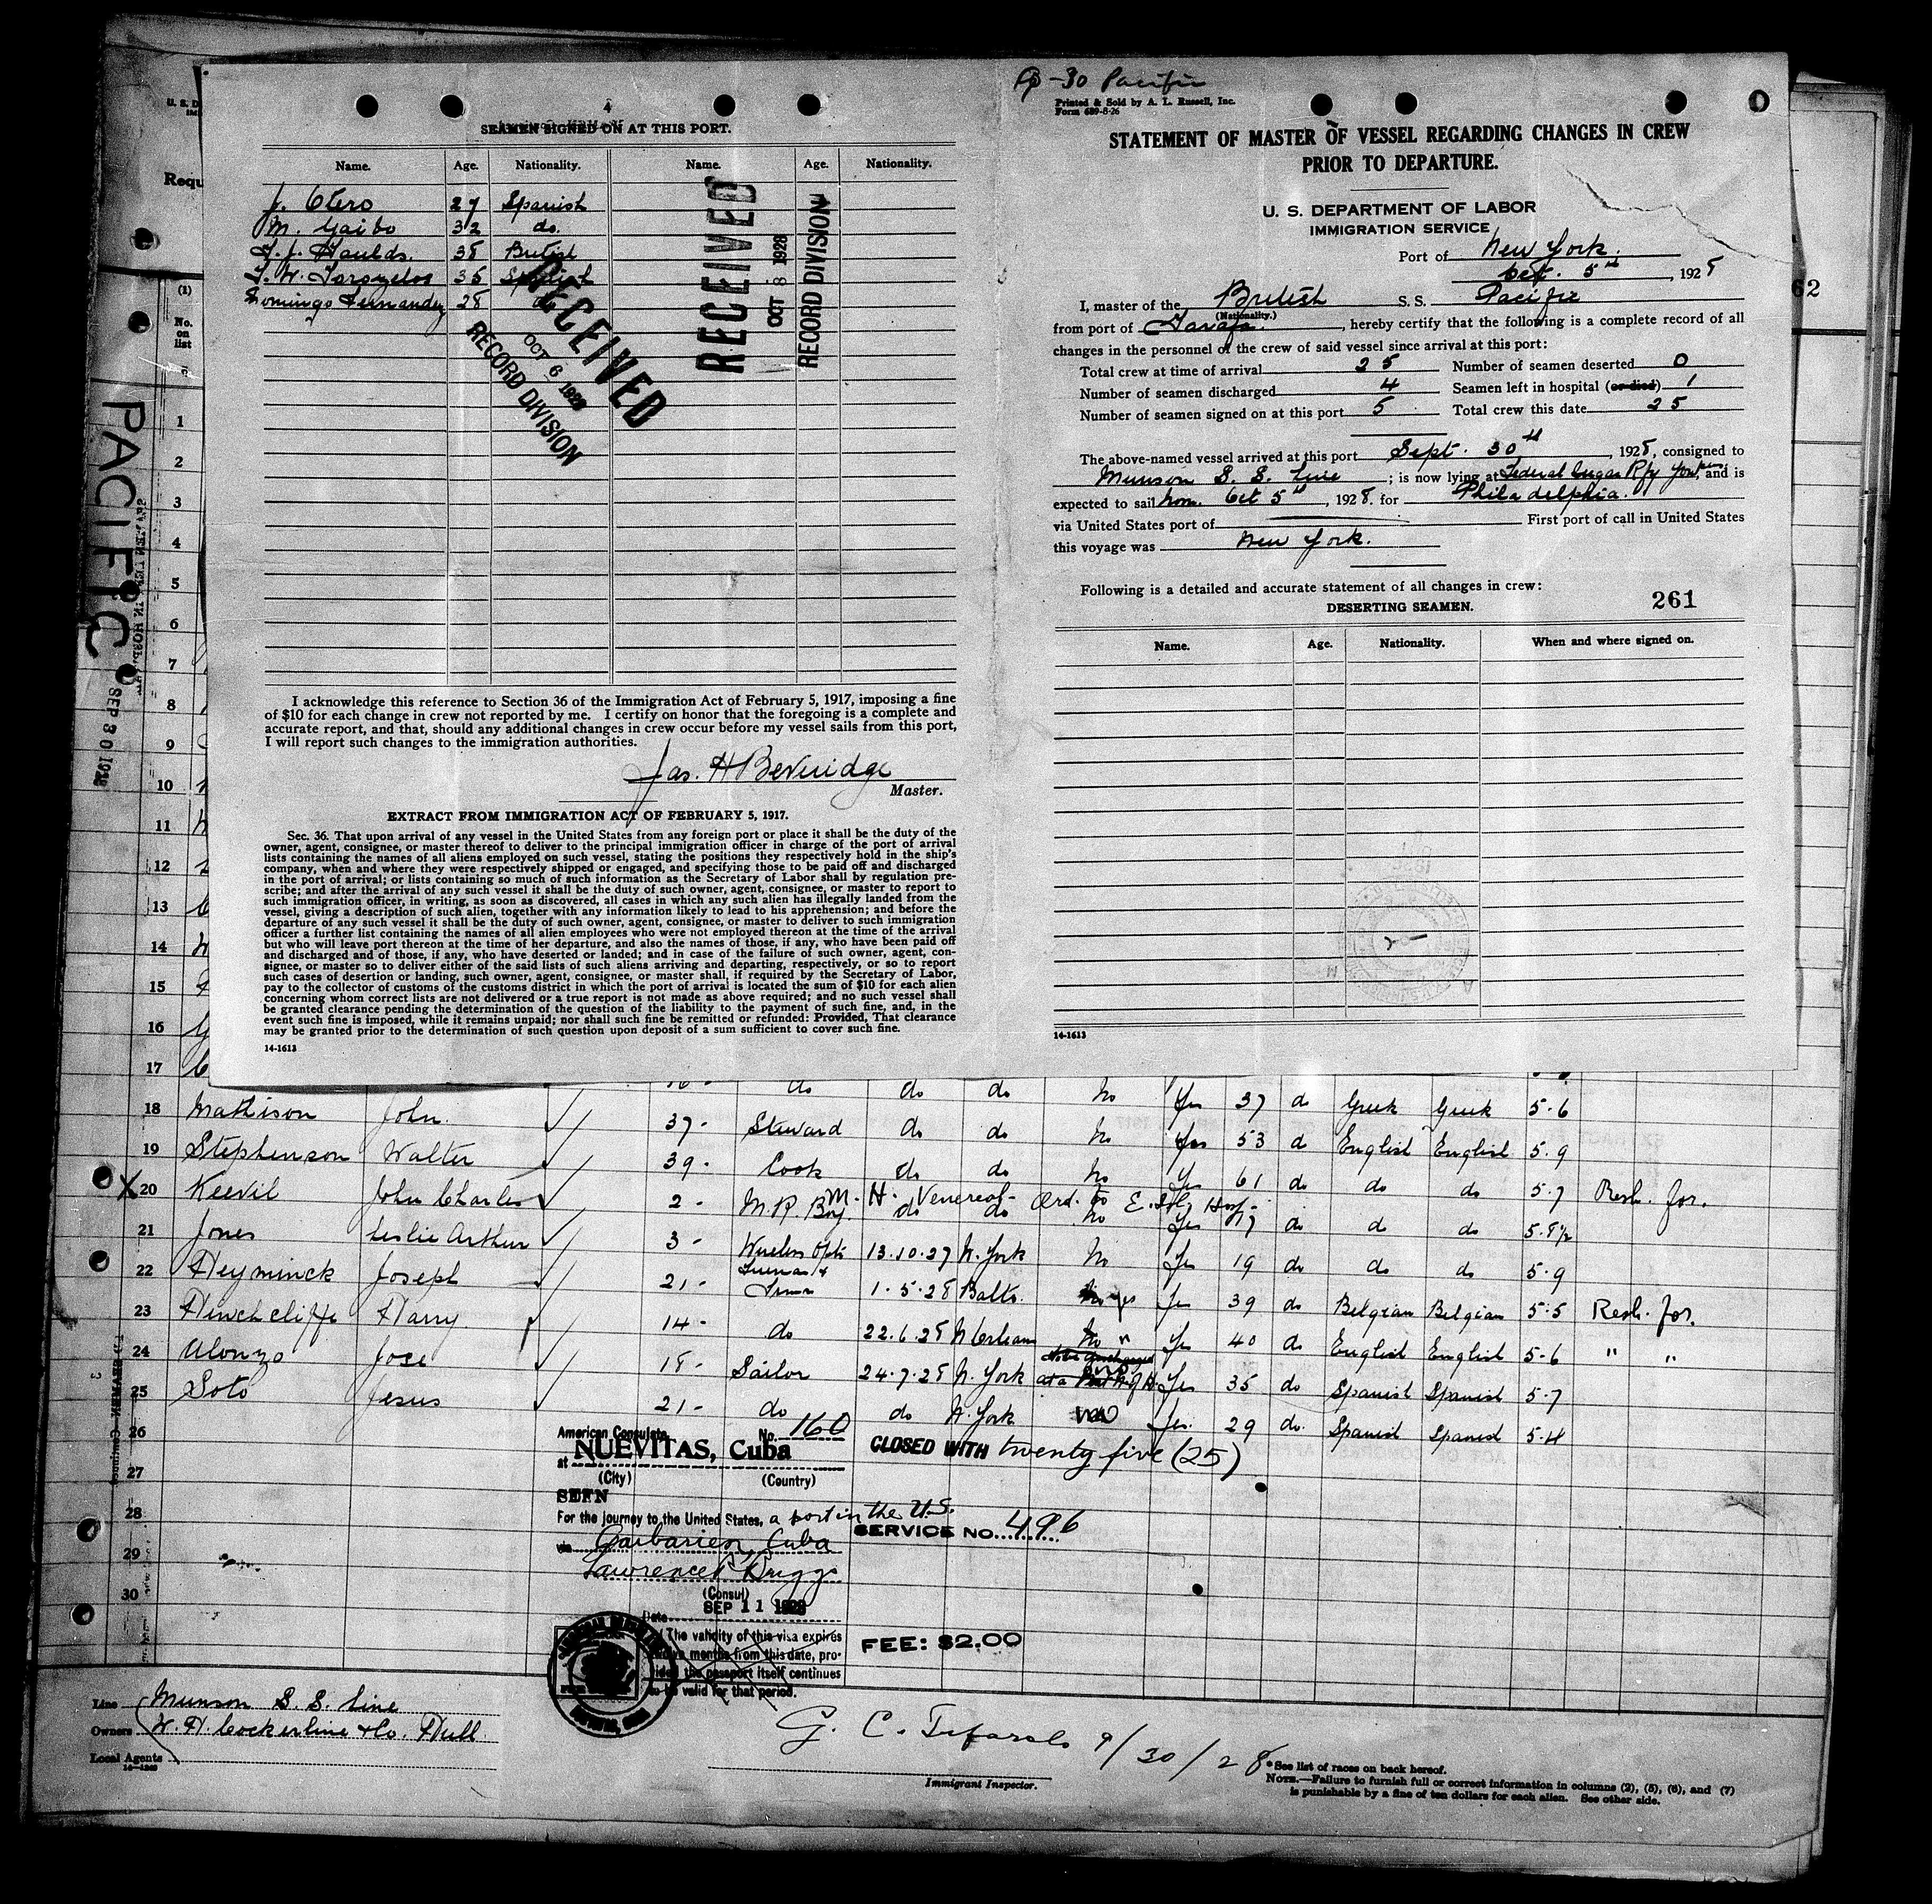 4
SEAMEN SIGNED ON AT THIS PORT.
Name. Age. Nationality. Name. Age. Nationality.
J. Otero 27 Spanish
M. Gaibo 32 do.
J. Haulds. 38 British
35 Spanish
Domingo Fernandez 28 do
RECEIVED
OCT 6 1928
RECORD DIVISION
RECEIVED
OCT 8 1928
RECORD DIVISION
I acknowledge this reference to Section 36 of the Immigration Act of February 5, 1917, imposing a fine
of $10 for each change in crew not reported by me. I certify on honor that the foregoing is a complete and
accurate report, and that, should any additional changes in crew occur before my vessel sails from this port,
I will report such changes to the immigration authorities.
Jas. H Beveridge
Master.
EXTRACT FROM IMMIGRATION ACT OF FEBRUARY 5, 1917.
Sec. 36. That upon arrival of any vessel in the United States from any foreign port or place it shall be the duty of the
owner, agent, consignee, or master thereof to deliver to the principal immigration officer in charge of the port of arrival
lists containing the names of all aliens employed on such vessel, stating the positions they respectively hold in the ship's
company, when and where they were respectively shipped or engaged, and specifying those to be paid off and discharged
in the port of arrival; or lists containing so much of such information as the Secretary of Labor shall by regulation pre-
scribe; and after the arrival of any such vessel it shall be the duty of such owner, agent, consignee, or master to report to
such immigration officer, in writing, as soon as discovered, all cases in which any such alien has illegally landed from the
vessel, giving a description of such alien, together with any information likely to lead to his apprehension; and before the
departure of any such vessel it shall be the duty of such owner, agent, consignee, or master to deliver to such immigration
officer a further list containing the names of all alien employees who were not employed thereon at the time of the arrival
but who will leave port thereon at the time of her departure, and also the names of those, if any, who have been paid off
and discharged and of those, if any, who have deserted or landed; and in case of the failure of such owner, agent, con-
signee, or master so to deliver either of the said lists of such aliens arriving and departing, respectively, or so to report
such cases of desertion or landing, such owner, agent, consignee, or master shall, if required by the Secretary of Labor,
pay to the collector of customs of the customs district in which the port of arrival is located the sum of $10 for each alien
concerning whom correct lists are not delivered or a true report is not made as above required; and no such vessel shall
be granted clearance pending the determination of the question of the liability to the payment of such fine, and, in the
event such fine is imposed, while it remains unpaid; nor shall such fine be remitted or refunded: Provided, That clearance
may be granted prior to the determination of such question upon deposit of a sum sufficient to cover such fine.
14-1613
-30 Pacific
Printed & Sold by A. L. Russell, Inc.
Form 689-8-26
STATEMENT OF MASTER OF VESSEL REGARDING CHANGES IN CREW
PRIOR TO DEPARTURE.
U. S. DEPARTMENT OF LABOR
IMMIGRATION SERVICE
Port of New York.
Oct. 5th, 1928
I, master of the British S. S. Pacific
(Nationality.)
from port of Tarafa., hereby certify that the following is a complete record of all
changes in the personnel of the crew of said vessel since arrival at this port:
Total crew at time of arrival 25 Number of seamen deserted 0
Number of seamen discharged 4 Seamen left in hospital (or died) 1
Number of seamen signed on at this port 5 Total crew this date 25
The above-named vessel arrived at this port Sept. 30th, 1928, consigned to
Munson S. S. Line; is now lying at Federal Sugar Rfy Yonkers, and is
expected to sail Oct 5th, 1928. for Philadelphia.
via United States port of First port of call in United States
this voyage was New York.
Following is a detailed and accurate statement of all changes in crew:
261
DESERTING SEAMEN.
Name. Age. Nationality. When and where signed on.
14-1613
U. S. D
Requ
62
(1)
No.
on
list
PACIFIC
SEP 30 1928
1
2
3
4
5
6
7
8
9
10
11
12
13
14
15
16
17
do do do No Yes 37 do Greek Greek 5-6
18 Mathison John. 37- Steward do do No Yes 53 d English English 5-9
19 Stephenson Walter 39- Cook do do No Yes 61 do do do 5-7 Resh. for.
X 20 Keevil John Charles 2- M.R. Boy. do do No Yes 19 do d do 5-8½
M. H. Venereal- Ord. to E. Isl. Hosp-
21 Jones Leslie Arthur 3- Wireless Optr 13.10.27 N. York No Yes 19 do do do 5-9
22 Heyminck Joseph 21- Fireman & Trimr 1.5.28 Balto. yes Yes 39 do Belgian Belgian 5-5 Resh. for.
23 Hinchcliffe Harry 14- do 22.6.28 N Orleans No " Yes 40 do English English 5-6 " "
24 Alonzo Jose 18- Sailor 24.7.28 N. York Yes 35 do Spanish Spanish 5-7
25 Soto Jesus 21- do do N. York Yes. 29 do. Spanish Spanish 5-4
26
27
28
29
30
American Consulate No. 160
at NUEVITAS, Cuba
(City) (Country)
SEEN
For the journey to the United States, a port in the U.S.
via Caibarien, Cuba
Lawrence P. Briggs
(Consul)
Date SEP 11 1928
The validity of this visa expires
twelve months from this date, pro-
vided the passport itself continues
to be valid for that period.
CLOSED WITH twenty five (25)
SERVICE NO. 496
FEE: $2.00
Line Munson S. S. Line
Owners W. H. Cockerline & Co. Hull
Local Agents
14-1240
9/30/28
Immigrant Inspector.
*See list of races on back hereof.
NOTE.—Failure to furnish full or correct information in columns (2), (5), (6), and (7)
is punishable by a fine of ten dollars for each alien. See other side.